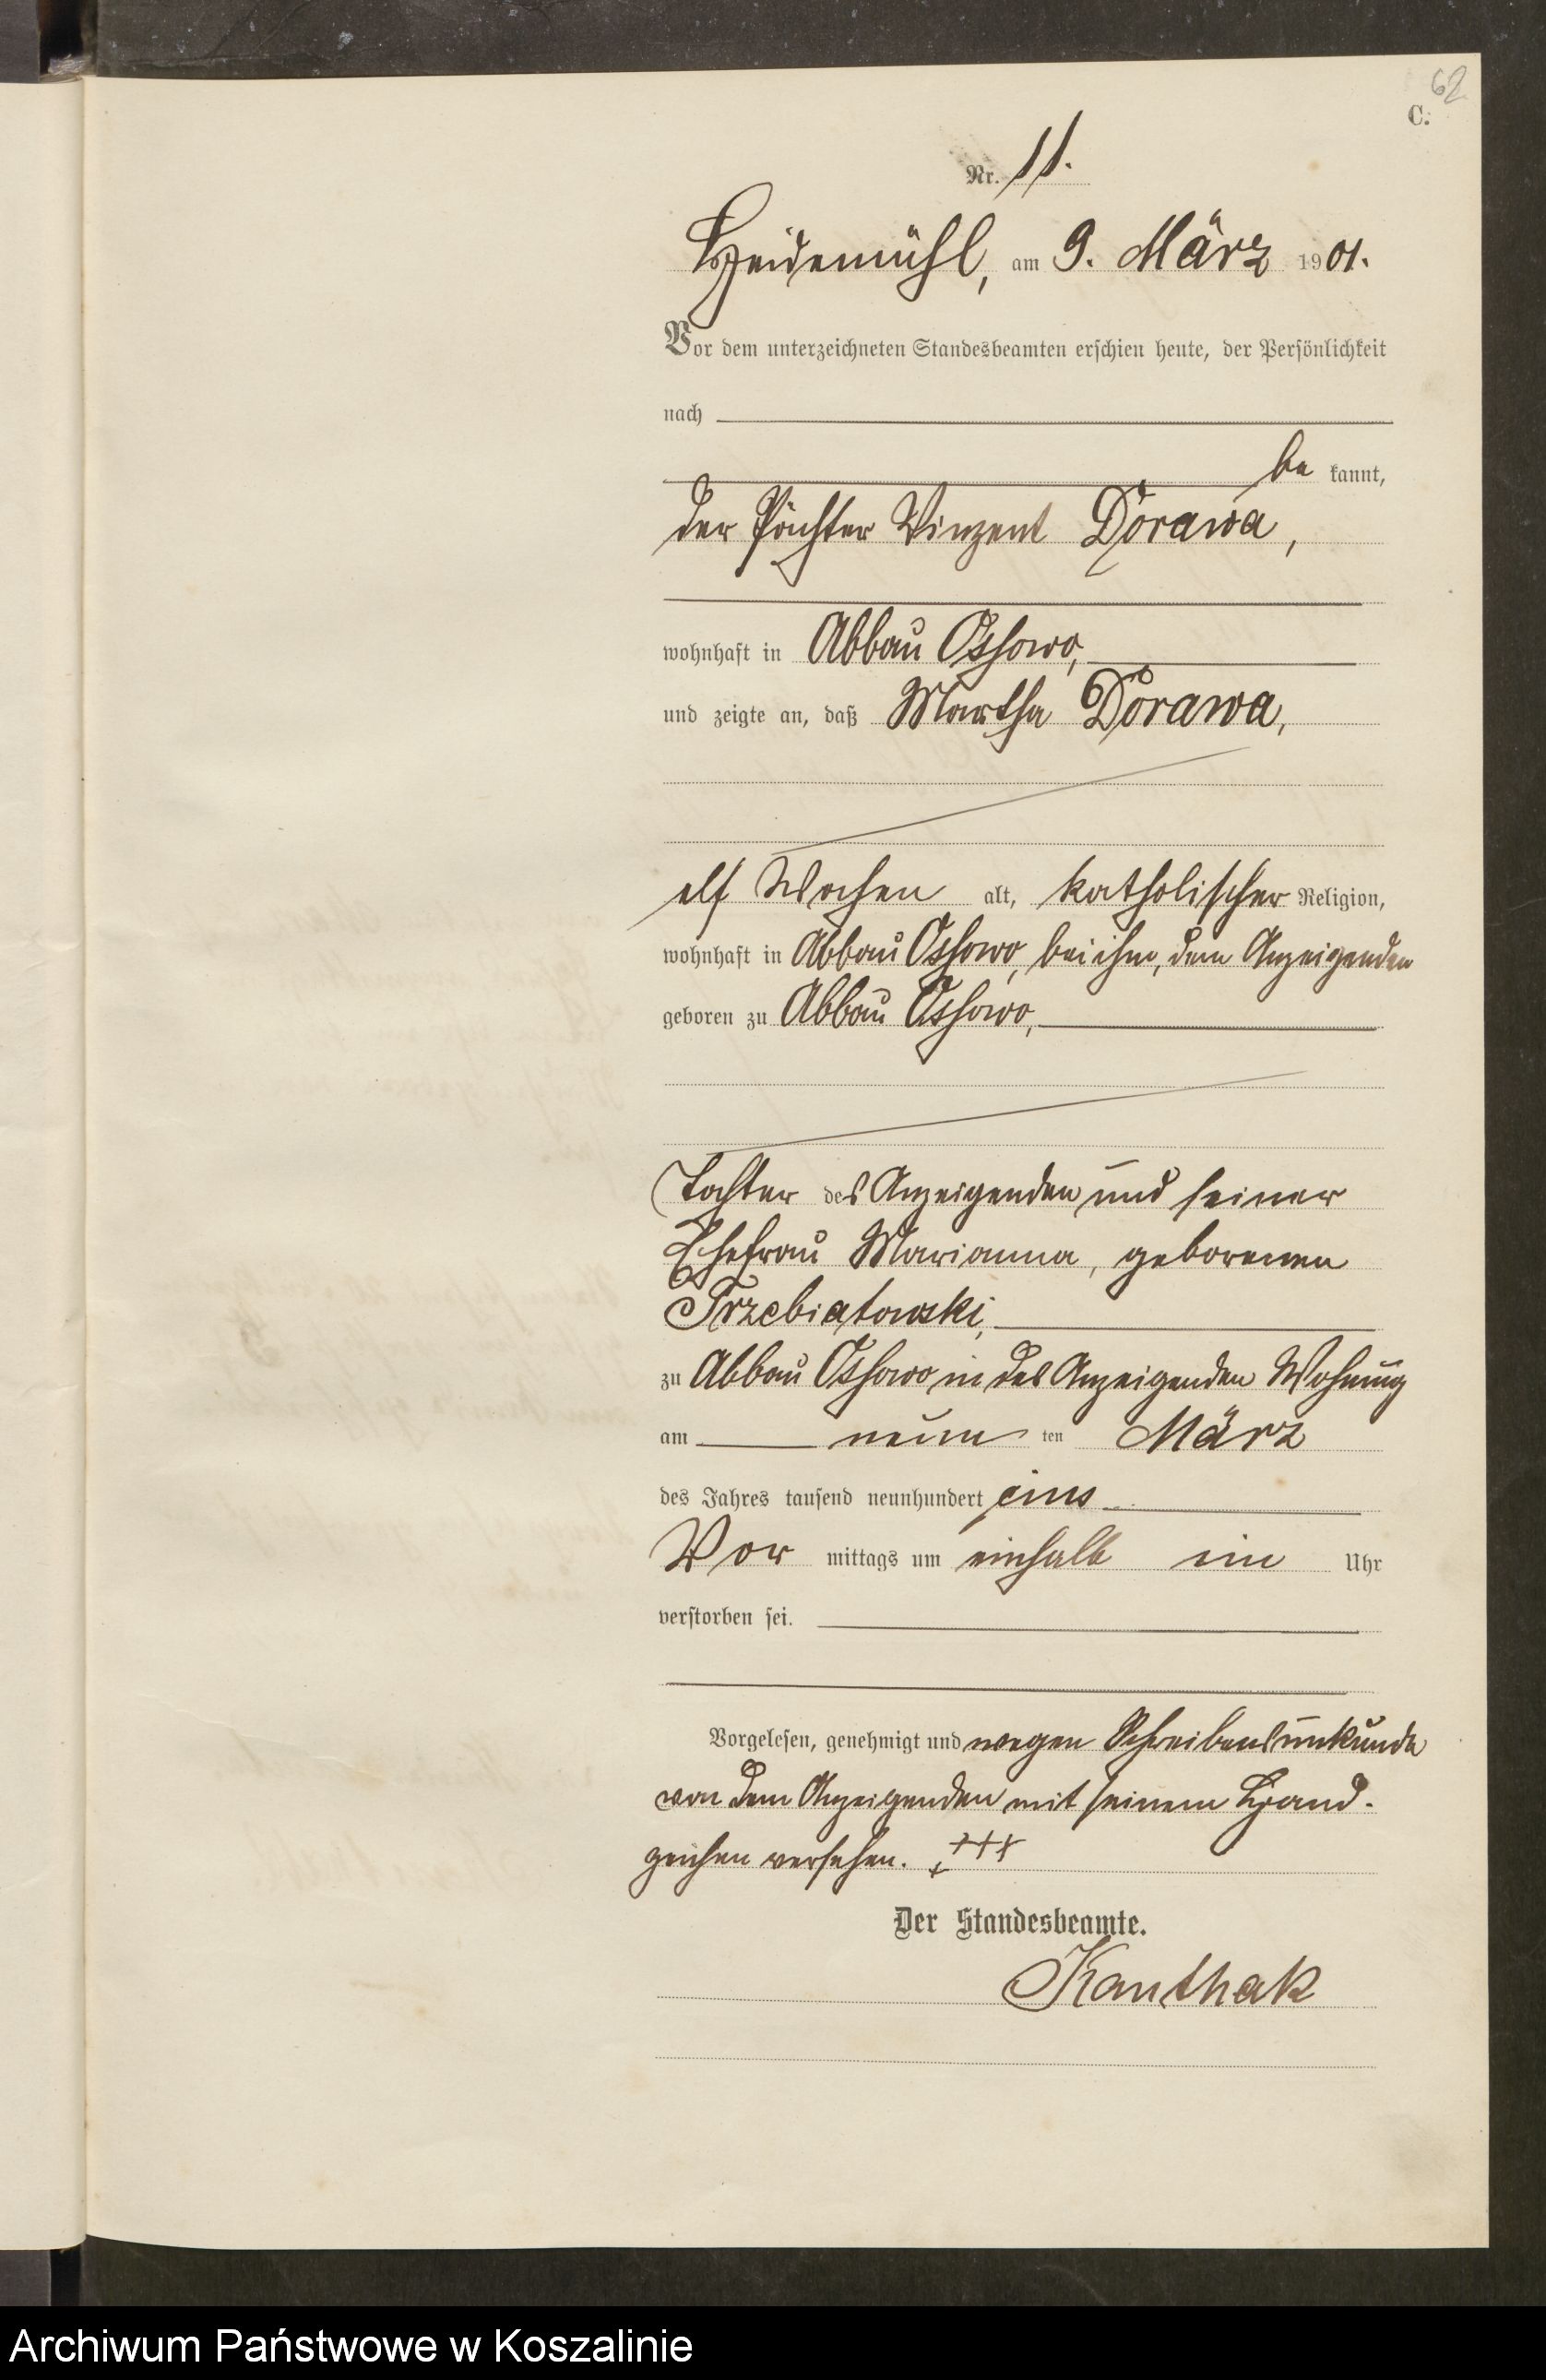 62
C.
Nr. 11.
Heidemühl, am 9. März 1901.
Vor dem unterzeichneten Standesbeamten erschien heute, der Persönlichkeit
nach
be kannt,
der Pächter Vinzent Dorawa,
wohnhaft in Abbau Ossowo,
und zeigte an, daß Martha Dorawa,
elf Wochen alt, katholischer Religion,
wohnhaft in Abbau Ossowo, bei ihm, dem Anzeigenden
geboren zu Abbau Ossowo,
Tochter des Anzeigenden und seiner
Ehefrau Marianna, geborenen
Trzebiatowski,
zu Abbau Ossowo in des Anzeigenden Wohnung
am neun ten März
des Jahres tausend neunhundert eins
Vor mittags um einhalb ein Uhr
verstorben sei.
Vorgelesen, genehmigt und wegen Schreibensunkunde
von dem Anzeigenden mit seinem Hand-
zeichen versehen. +++
Der Standesbeamte.
Kanthak
Archiwum Państwowe w Koszalinie